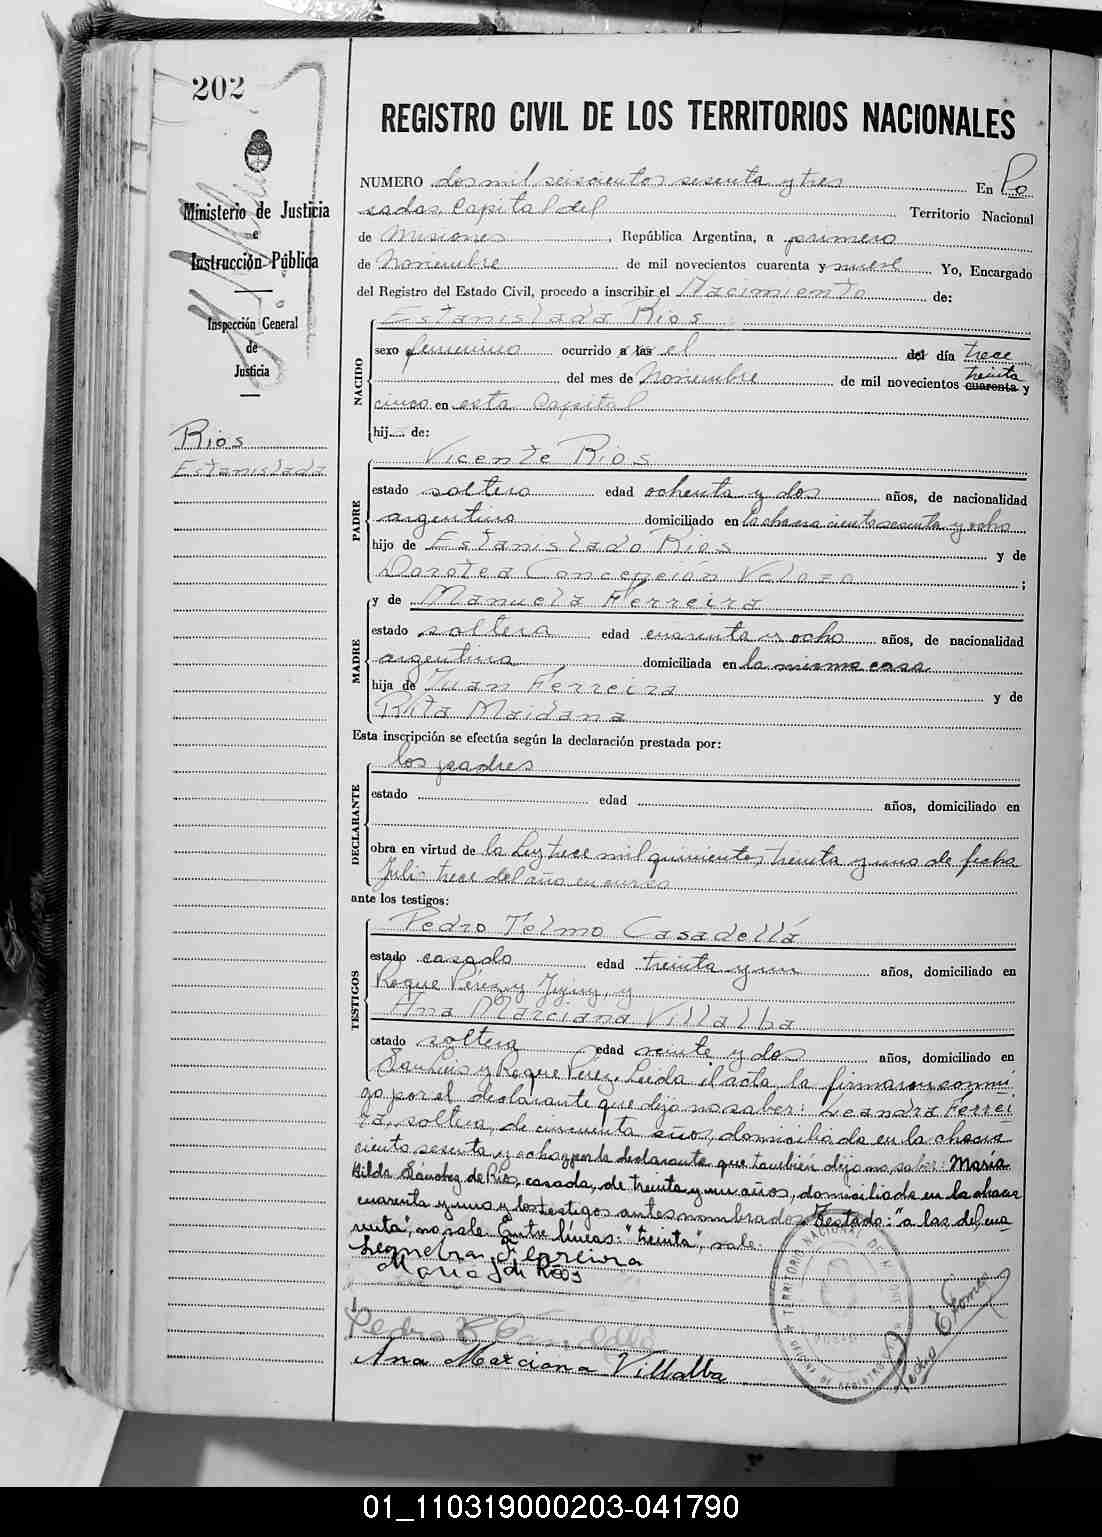 202
REGISTRO CIVIL DE LOS TERRITORIOS NACIONALES
Ministerio de Justicia
e
Instrucción Pública
Inspección General
de
Justicia
Rios
Estanislada
NUMERO dos mil seiscientos sesenta y tres En Po
sadas, Capital del Territorio Nacional
de Misiones, República Argentina, a primero
de Noviembre de mil novecientos cuarenta y nueve Yo, Encargado
del Registro del Estado Civil, procedo a inscribir el Nacimiento de:
NACIDO
Estanislada Rios
sexo femenino ocurrido a las el del día trece
del mes de Noviembre de mil novecientos cuarenta treinta y
cinco en esta Capital
hij de:
PADRE
Vicente Rios
estado soltero edad ochenta y dos años, de nacionalidad
argentino domiciliado en la chacra ciento sesenta y ocho
hijo de Estanislado Rios y de
Dorotea Concepción Velozo;
MADRE
y de Manuela Ferreira
estado soltera edad cuarenta y ocho años, de nacionalidad
argentina domiciliada en la misma casa
hija de Juan Ferreira y de
Rita Maidana
Esta inscripción se efectúa según la declaración prestada por:
DECLARANTE
los padres
estado edad años, domiciliado en
obra en virtud de la Ley trece mil quinientos treinta y uno de fecha
Julio trece del año en curso
ante los testigos:
TESTIGOS
Pedro Telmo Casadellá
estado casado edad treinta y un años, domiciliado en
Roque Pérez y Jujuy, y
Ana Marciana Villalba
estado soltera edad veinte y dos años, domiciliado en
San Luis y Roque Pérez. Leida el acta la firmaron conmi
go por el declarante que dijo no saber: Leandra Ferrei
ra, soltera, de cincuenta años, domiciliada en la chacra
ciento sesenta y ocho y por la declarante que también dijo no saber: María
Hilda Sánchez de Rios, casada, de treinta y un años, domiciliada en la chacra
cuarenta y uno y los testigos antes nombrados. Testado: "a las del cua
renta", no vale. Entre líneas: "treinta", vale.
Leandra Ferreira
Maria de Rios
Ana Marciana Villalba
01_110319000203-041790